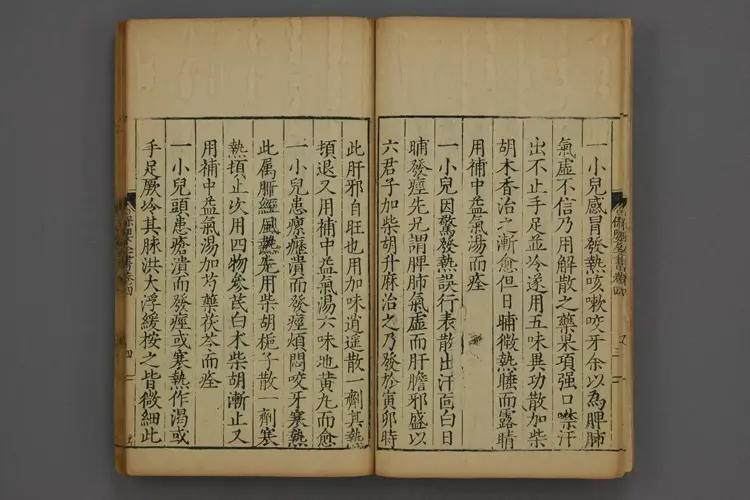 一小兒感冒發熱咳嗽咬牙余以為脾肺
氣虛不信乃用解散之藥果項强口噤汗
出不止手足並冷遂用五味異功散加柴
胡木香治之漸愈但日晡微熱睡而露睛
用補中益氣湯而痊
一小兒因驚發熱誤行表散出汗面白日
晡發痙先兄謂脾肺氣虛而肝膽邪盛以
六君子加柴胡升麻治之乃發於寅卯時
此肝邪自旺也用加味逍遙散一劑其熱
頃退又用補中益氣湯六味地黃丸而愈
一小兒患瘰癧潰而發痙煩悶咬牙寒熱
此属肝經風熱先用柴胡梔子散一劑寒
熱頃止次用四物參芪白术柴胡漸止又
用補中益氣湯加芍藥茯苓而痊
一小兒頭患瘡潰而發痙或寒熱作渴或
手足厥冷其脉洪大浮緩按之皆微細此